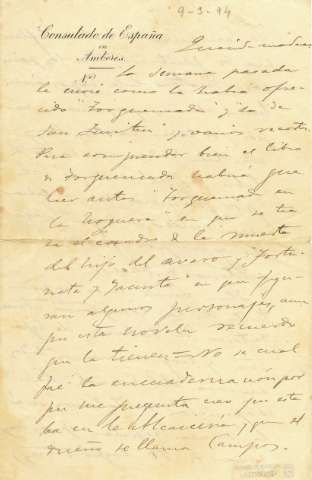 9-3-94
Consulado de España
en
Amberes.
Nº
Querida madre:
la semana pasada
le envié como le había ofre
cido "Torquemada" y "lo de
San Quintín" y varios
Para comprender bien el libro
de Torquemada habrá que
leer antes "Torquemada en
la hoguera" en que se tra
ta el cuadro de la muerte
del hijo del avaro y "Fortu
nata y Jacinta" en que figu
ran algunos personajes, aun
que esta novela recuerdo
que la tienen = No se cual
fué la encuadernación por
que me pregunta creo que esta
ba en la Alcaicería y que el
dueño se llama Campos.